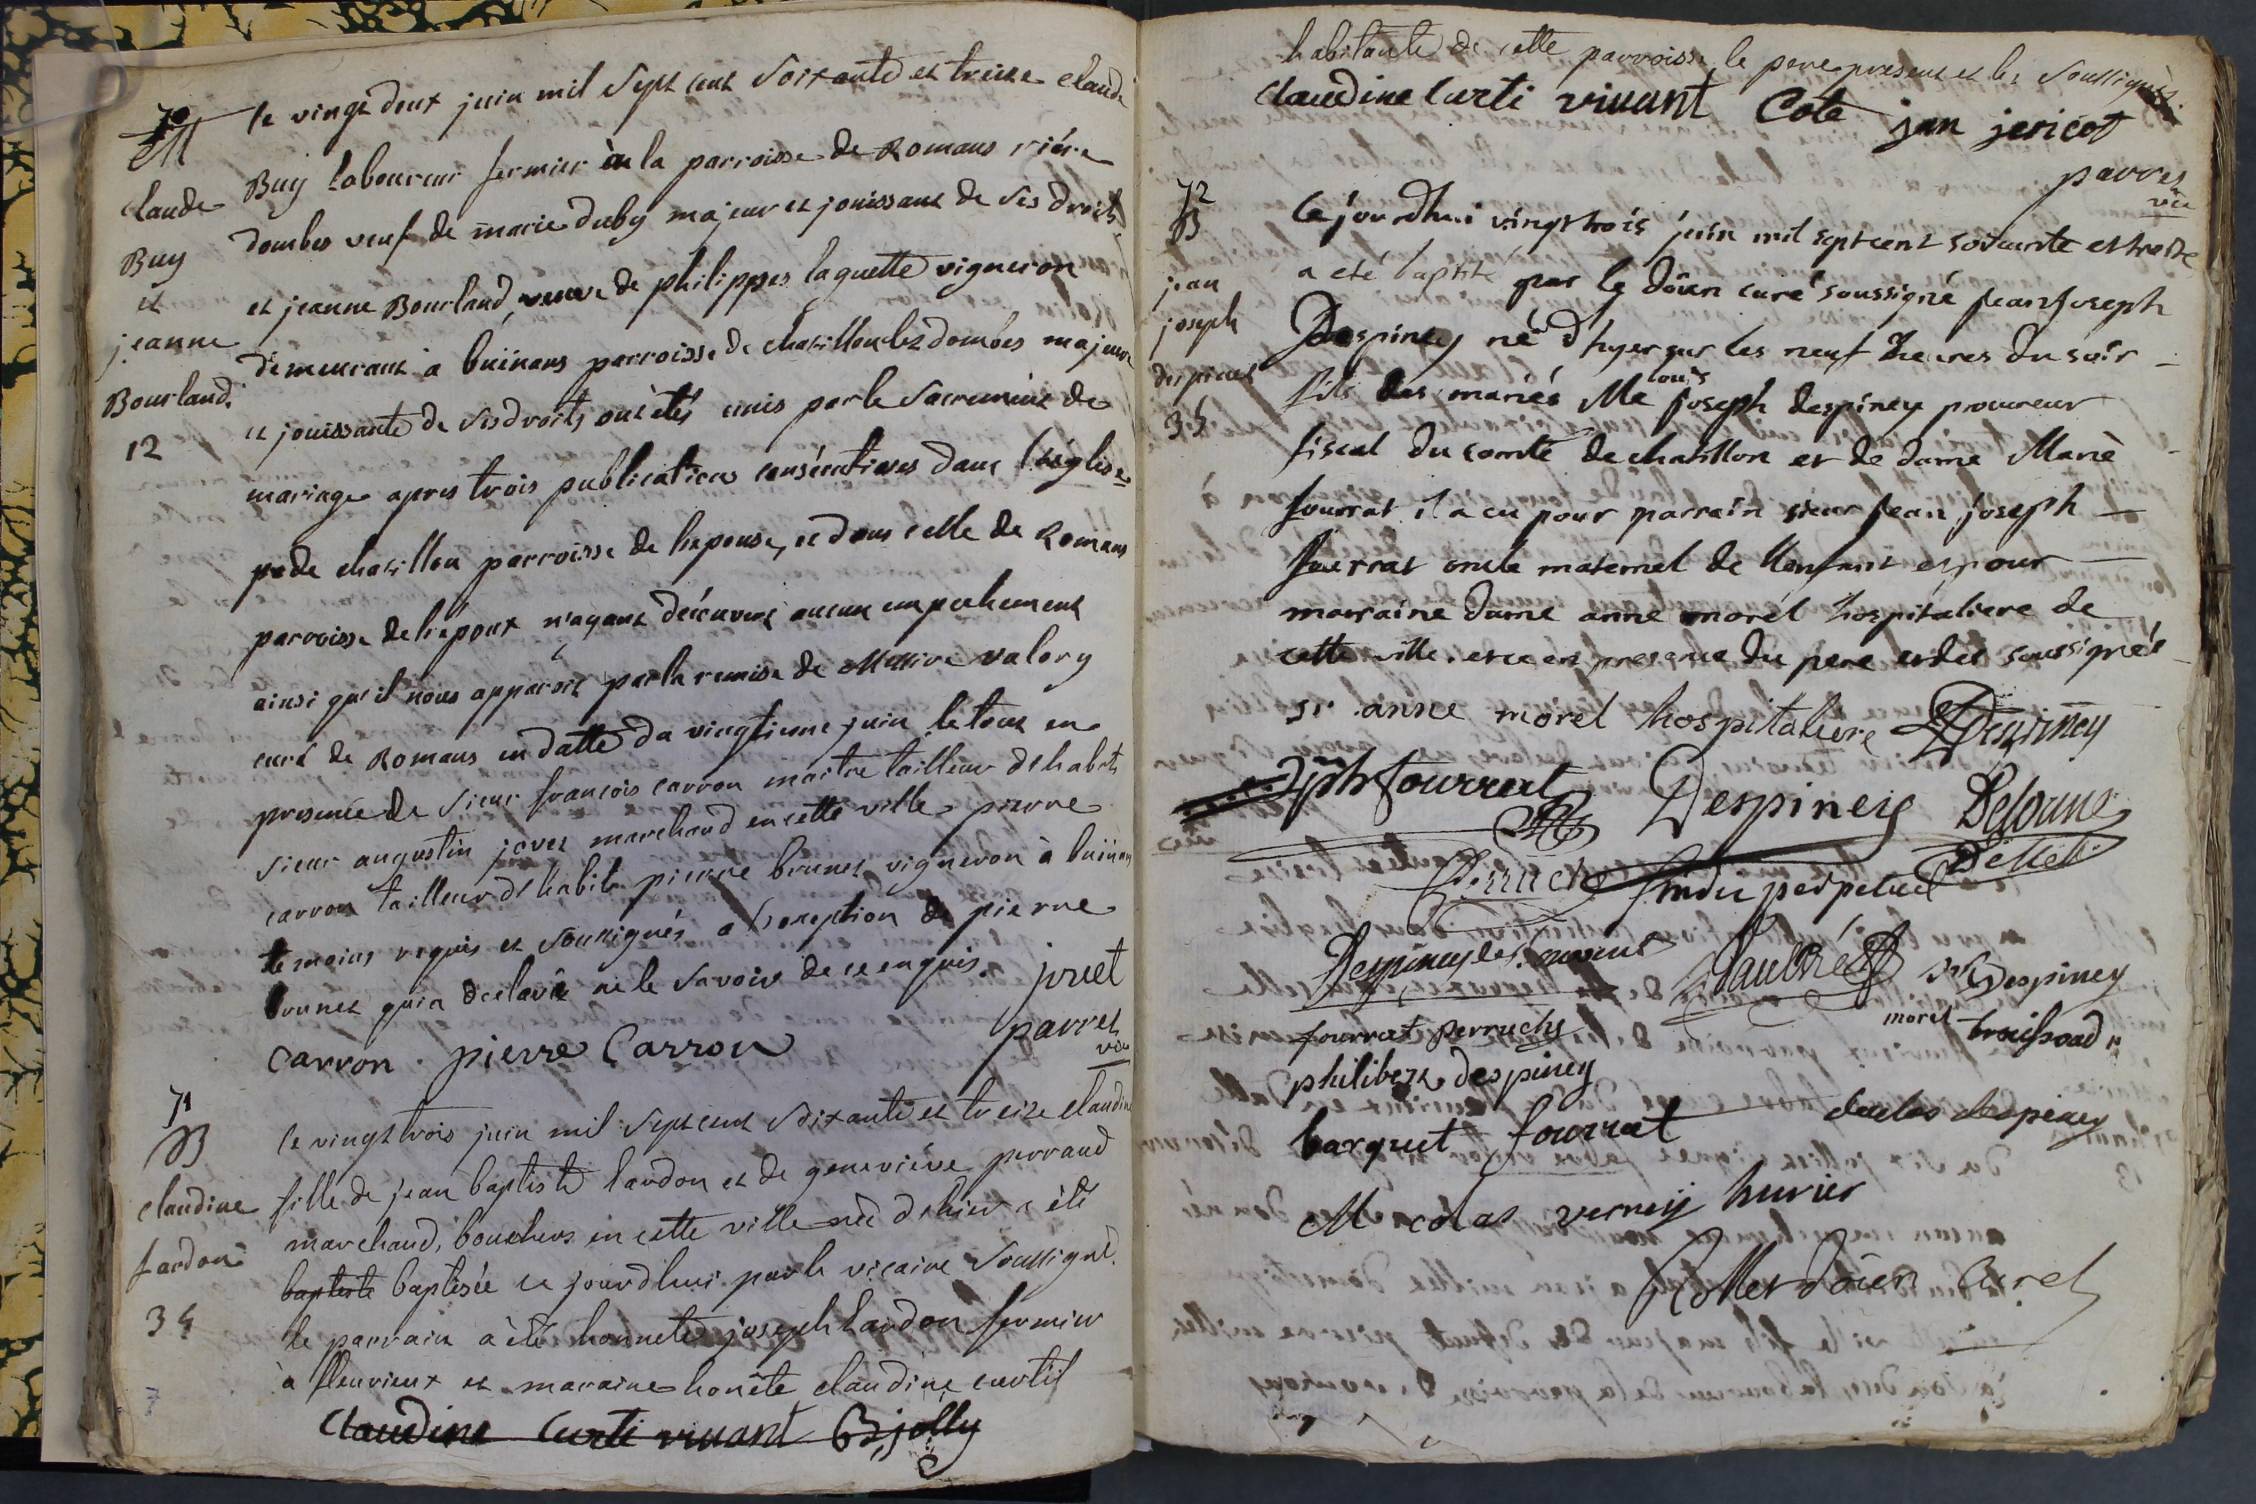 70
M
claude
Buy
et
jeanne
Bourland
12
le vingt deux juin mil sept cent soixante et treize claude
Buy laboureur fermier en la parroisse de Romans riére
dombes veuf de marie duby majeur et jouissant de ses droits
et jeanne Bourland, veuve de philippes laquette vigneron
demeurant a buinans parroisse de chatillon les dombes majeure
et jouissante de ses droits ont étés unis par le sacrement de
mariage apres trois publications consécutives dans l'église
de chatillon parroisse de l'epouse, et dans celle de Romans
parroisse de l'époux n'ayant découvert aucun empechement
ainsi qu'il nous apparoit par la remise de Messire valory
curé de Romans en datte du vingtieme juin le tout en
presence de sieur francois carron maitre tailleur d'habits
sieur augustin joves marchand en cette ville pierre
carron tailleur d'habits pierre brunet vigneron à buinans
temoins requis et soussignés a l'exception de pierre
brunet qui a declaré ne le savoir de ce enquis. jouet
carron . pierre Carron parret
vic
71
B
claudine
lardon
34
le vingt trois juin mil sept cent soixante et treize claudine
fille de jean baptiste lardon et de geneviéve perraud
marchand, bouchers en cette ville née d'hier a été
baptiste baptisée ce jourd'hui par le vicaire soussigné.
le parrain à été honnete joseph lardon fermier
à fleurieux et maraine honéte claudine curtil
Claudine Curti vivant B jolly
habitante de cette parroisse le pere present et les soussignés
Claudine Curti vivant Cote jan jericot
parret
vic
72
B
jean
joseph
despinei
35
Cejourdhui vingt trois juin mil sept cent soixante et treize
a eté baptisé par le doien curé soussigné jean joseph
Despiney né d'hyer sur les neuf heures du soir
fils des mariés Me louis joseph despiney procureur
fiscal du comté de chatillon et de dame Marie
fourrat il a eu pour parrain sieur jean joseph
fourrat oncle maternel de l'enfant et pour
marraine dame anne morel hospitaliere de
cette ville. et ce en presence du pere et des soussignés
sr anne morel hospitaliere Despiney
jph fourrat Despiney Delorme
Perruche sindic perpetuel
Despiney Paultre Despiney
fourrat perruche morel broissoud
philibert despiney
barquet fourrat duclos despiney
M colas verney hurier
Rollet doien Curé